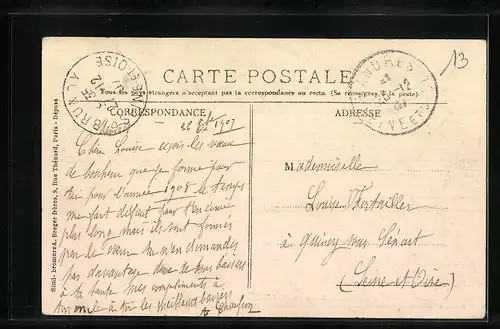 13
CARTE POSTALE
Tous les pays étrangers n'acceptant pas la correspondance au recto. (Se renseigner à la poste).
CORRESPONDANCE
ADRESSE
1907
Chère Louise reçois les vœux
de bonheur que je forme pour
toi pour l'année 1908 le temps
me fait défaut pour t'en écrire
plus long mais ils sont formés
par le cœur tu n'en demandes
pas davantage de baisers
à ta tante mes compliments à
ton oncle à toi les meilleurs baisers
Mademoiselle
Louise
à Quincy sous Sénart
(Seine et Oise)
BRUNOY
SEINE-ET-OISE
MANDRES
SEINE-ET-OISE
Simi-bromure A. Breger frères, 9, Rue Thénard, Paris - Déposé